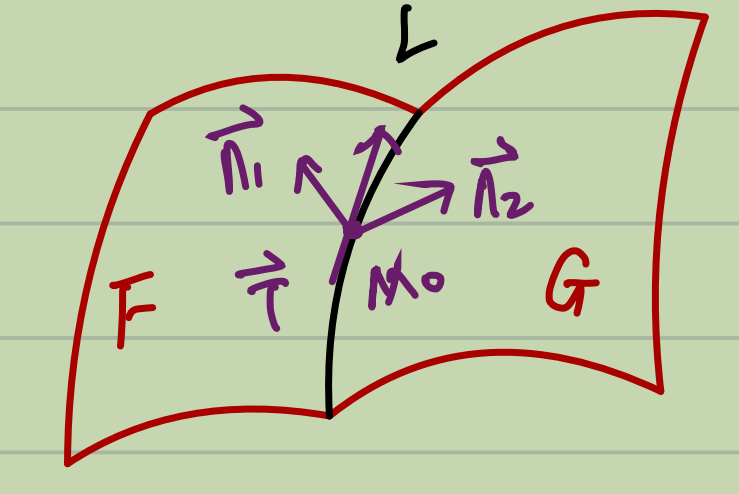 L
n⃗1
n⃗2
F
T⃗
M0
G